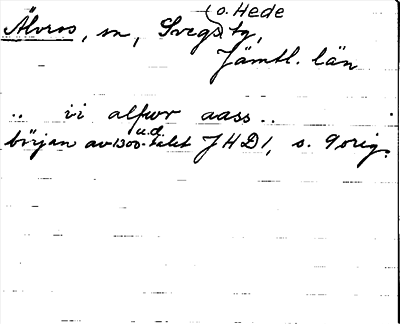 Älvros, sn, Svegs (o. Hede) tg,
Jämtl. län
.. vi alfwr aass ..
början av 1300-talet u.d. JHD1, s. 9 orig.